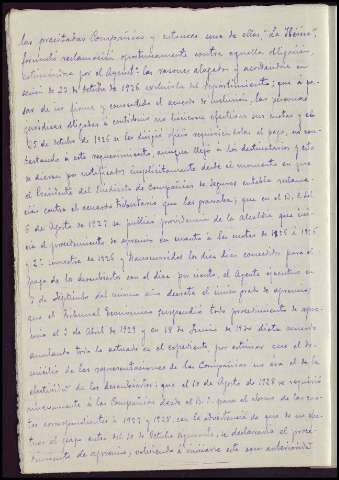 las precitadas Compañias y entonces una de ellas, "La Ibérica",
formuló reclamación oportunamente contra aquella obligación,
estimándose por el Ayuntº. las razones alegadas y acordando en
sesión de 22 de Octubre de 1926 excluirla del repartimiento; que á pe-
sar de ser firme y consentido el acuerdo de inclusión, las personas
jurídicas obligadas á contribuir no hicieron efectivas sus cuotas y el
25 de Octubre de 1926 se les dirigió oficio requiriéndolas al pago, no con-
testando á este requerimiento, aunque llegó á los destinatarios y esto
se dieron por notificados implícitamente desde el momento en que
el Presidente del Sindicato de Compañias de Seguros entabla reclama-
ción contra el acuerdo tributario que las gravaba; que en el B. O. del
6 de Agosto de 1927 se publica providencia de la Alcaldía que ini-
cia el procedimiento de apremio en cuanto á las cuotas de 1925 á 1926
y 2º. semestre de 1926 y transcurridos los diez días concedidos para el
pago de los descubiertos con el diez por ciento, el Agente ejecutivo en
7 de Septiembre del mismo año decretó el único grado de apremio;
que el Tribunal Económico suspendió todo procedimiento de apre-
mio el 3 de Abril de 1929 y en 18 de Junio de 1930 dictó acuerdo
anulando todo lo actuado en el expediente por estimar que el do-
micilio de las representaciones de las Compañias no era el de la
efectividad de los descubiertos; que el 10 de Agosto de 1928 se requirió
nuevamente á las Compañias desde el B. O. para el abono de las cuo-
tas correspondientes á 1927 y 1928, con la advertencia de que de no efec-
tuar el pago antes del 10 de Octubre siguiente, se declararía el proce-
dimiento de apremio, volviendo á iniciarse este con anterioridad